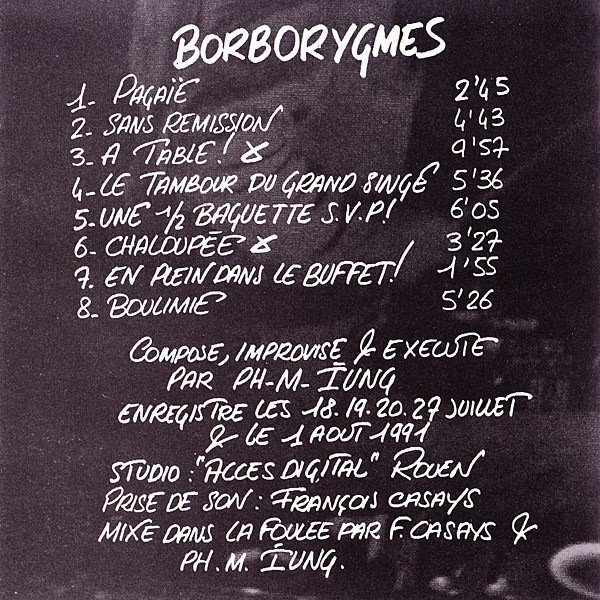 BORBORYGMES
1- PAGAÏE 2'45
2- SANS REMISSION 4'43
3- A TABLE! 9'57
4- LE TAMBOUR DU GRAND SINGE 5'36
5- UNE 1/2 BAGUETTE S.V.P! 6'05
6- CHALOUPÉE 3'27
7. EN PLEIN DANS LE BUFFET! 1'55
8- BOULIMIE 5'26
COMPOSE, IMPROVISE & EXECUTE
PAR PH-M- IUNG
ENREGISTRE LES 18.19.20.27 JUILLET
& LE 1 AOUT 1991
STUDIO : "ACCES DIGITAL" ROUEN
PRISE DE SON : FRANÇOIS CASAYS
MIXE DANS LA FOULEE PAR F. CASAYS &
PH. M. IUNG.